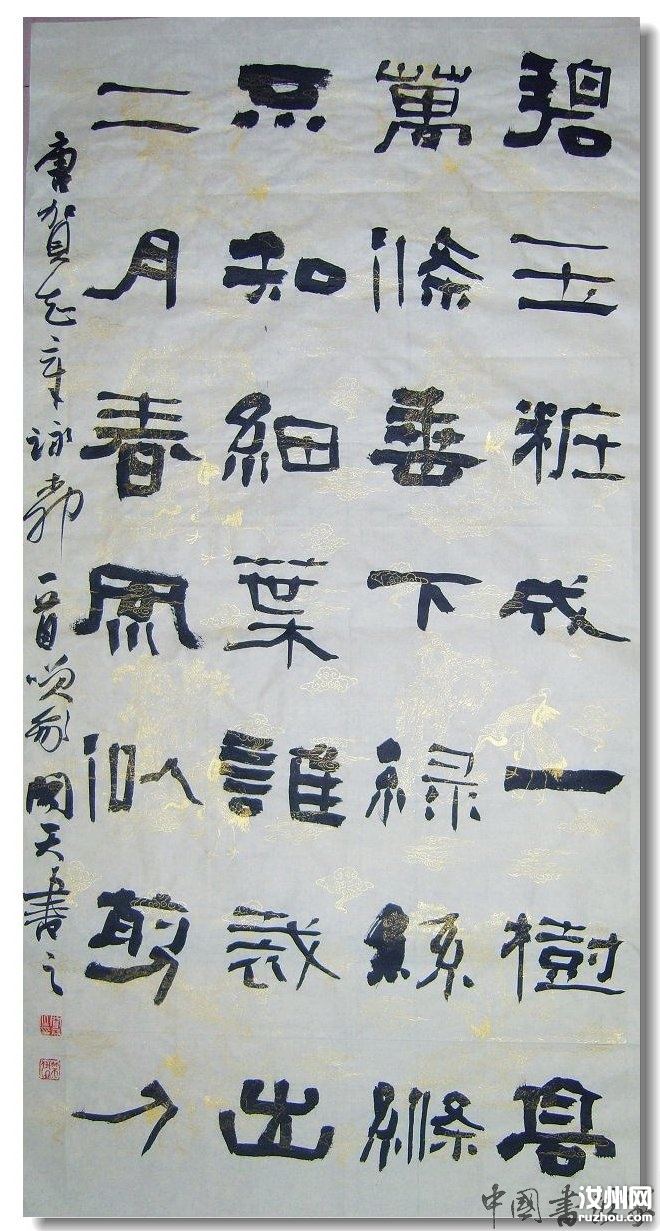 碧玉粧成一樹高
萬條垂下綠絲絛
不知細葉誰裁出
二月春風似剪刀
唐賀知章詠柳一首 天書之
中國書
汝州网
ruzhou.com